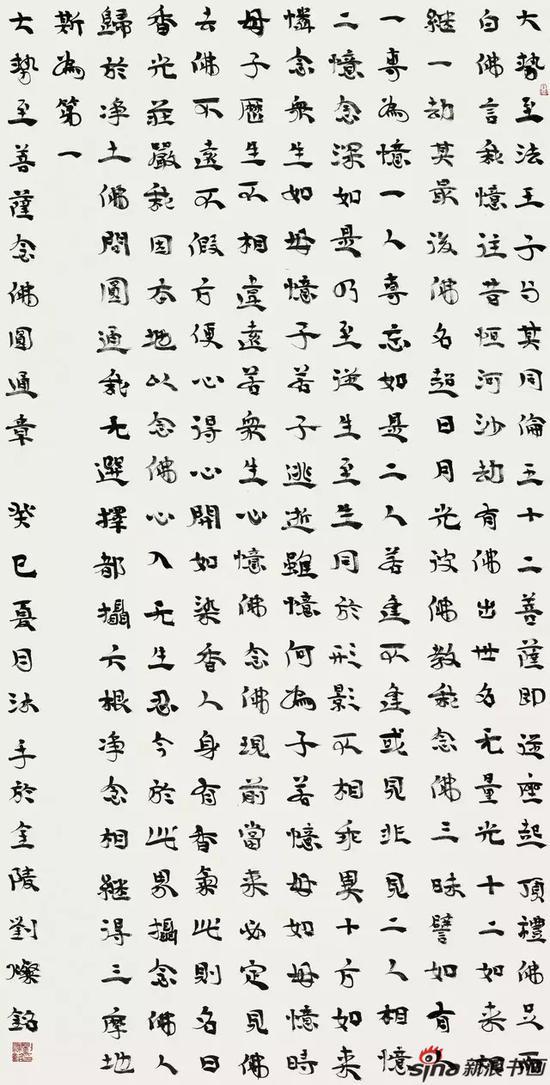 大勢至法王子与其同倫五十二菩薩即從座起頂禮佛足而
白佛言我憶往昔恒河沙劫有佛出世名无量光十二如来相
継一劫其最後佛名超日月光彼佛教我念佛三昧譬如有
一專為憶一人專忘如是二人若逢不逢或見非見二人相憶
二憶念深如是乃至從生至生同於形影不相乖異十方如来
憐念衆生如母憶子若子逃逝雖憶何為子若憶母如母憶時
母子歷生不相違遠若衆生心憶佛念佛現前當来必定見佛
去佛不遠不假方便心得心開如染香人身有香氣此則名曰
香光莊嚴我因本地以念佛心入无生忍今於此界攝念佛人
歸於净土佛問圓通我无選擇都攝六根净念相継得三摩地
斯為第一
大勢至菩薩念佛圓通章 癸巳夏月沐手於金陵劉燦銘
sina新浪书画